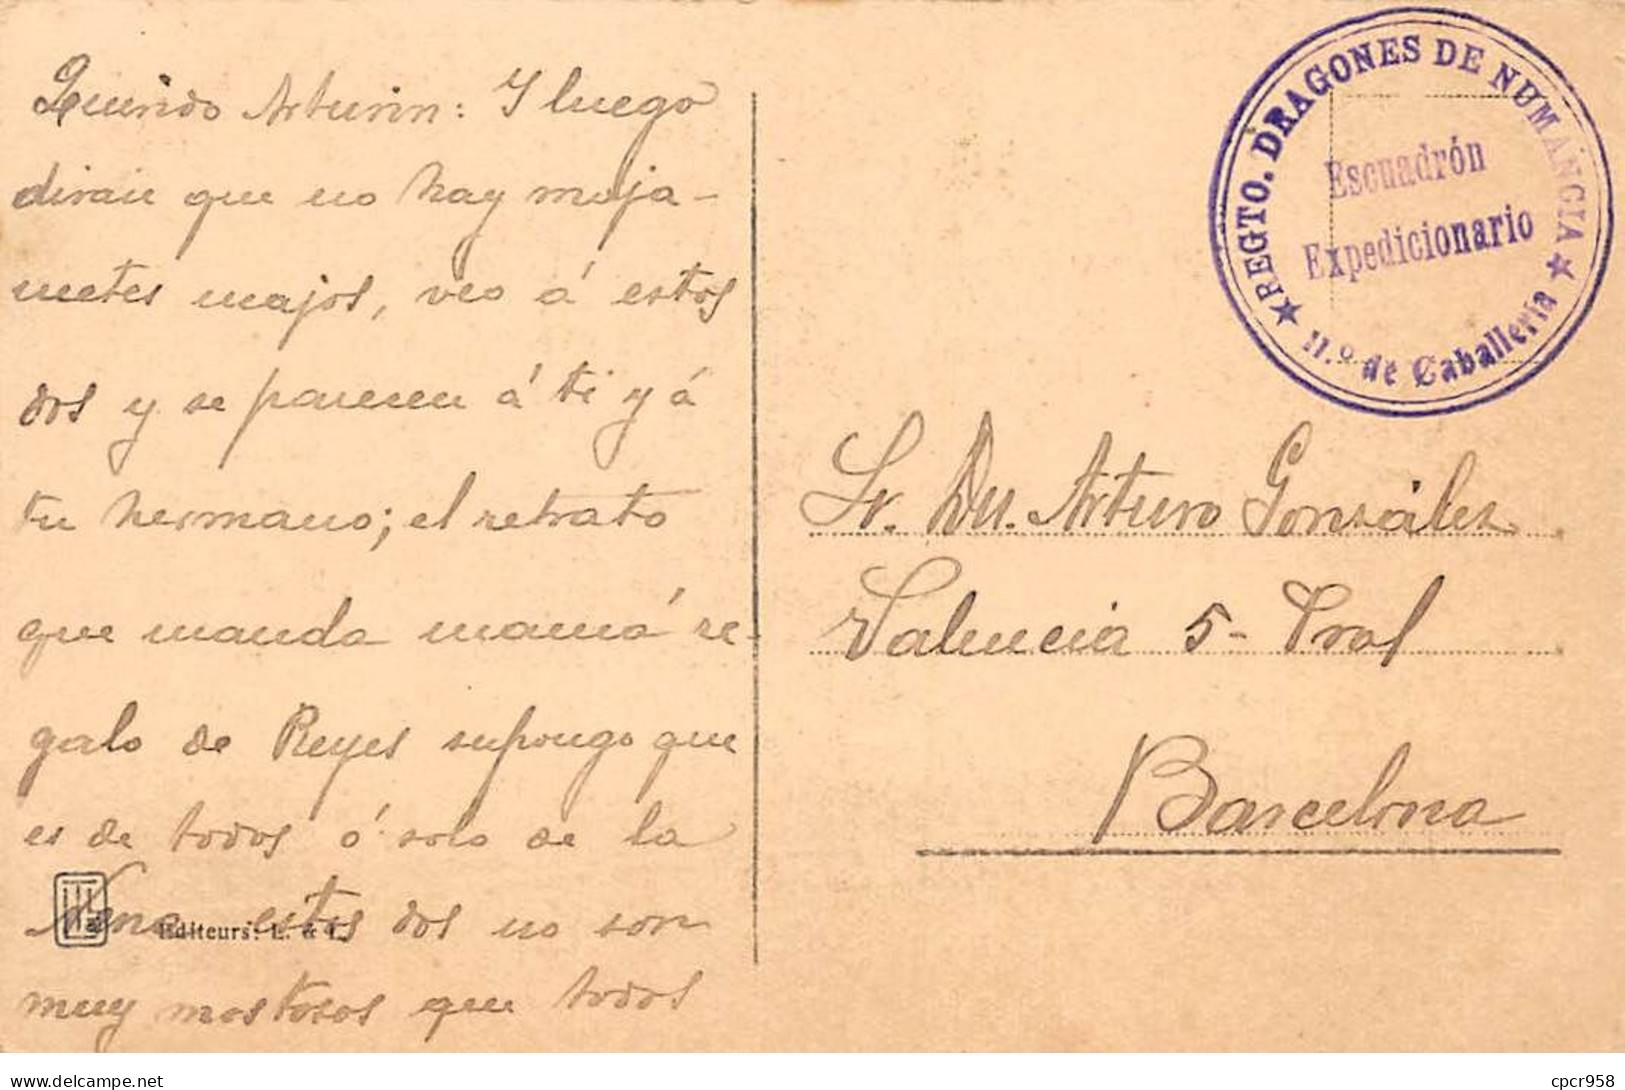 Querido Arturin: Y luego
diran que no hay moja-
metes majos, veo á estos
dos y se parecen á ti y á
tu hermano; el retrato
que manda mamá re-
galo de Reyes supongo que
es de todos ó solo de la
Nena estos dos no son
muy mostosos que todos
Editeurs: L. & L.
★ REGTO. DRAGONES DE NUMANCIA ★
Escuadrón
Expedicionario
11.º de Caballería
Sr. Dn. Arturo Gonzáles
Valencia 5- Pral
Barcelona
cpcr958